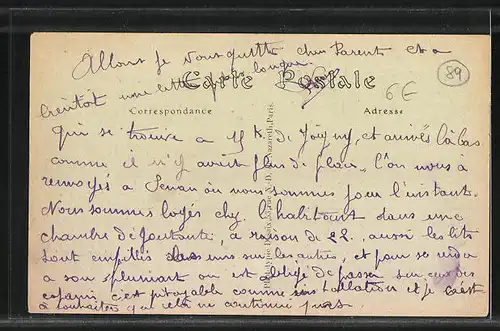 Allons je vous quitte chers Parents et a
bientôt une lettre plus longue
Carte Postale
89
6€
Correspondance
Adresse
qui se trouve a 15 K. de Joigny, et arrivés là bas
comme il n'y avait plus de place, l'on nous à
renvoyés a Senan où nous sommes pour l'instant.
Nous sommes logés chez l'habitant dans une
chambre de , a raison de 22, aussi les lits
sont empilles les uns sur les autres, et pour se rendre
a son on est obligé de passer sur ceux des
copains, c'est pitoyable comme installation et je
a souhaiter que cela ne continue pas.